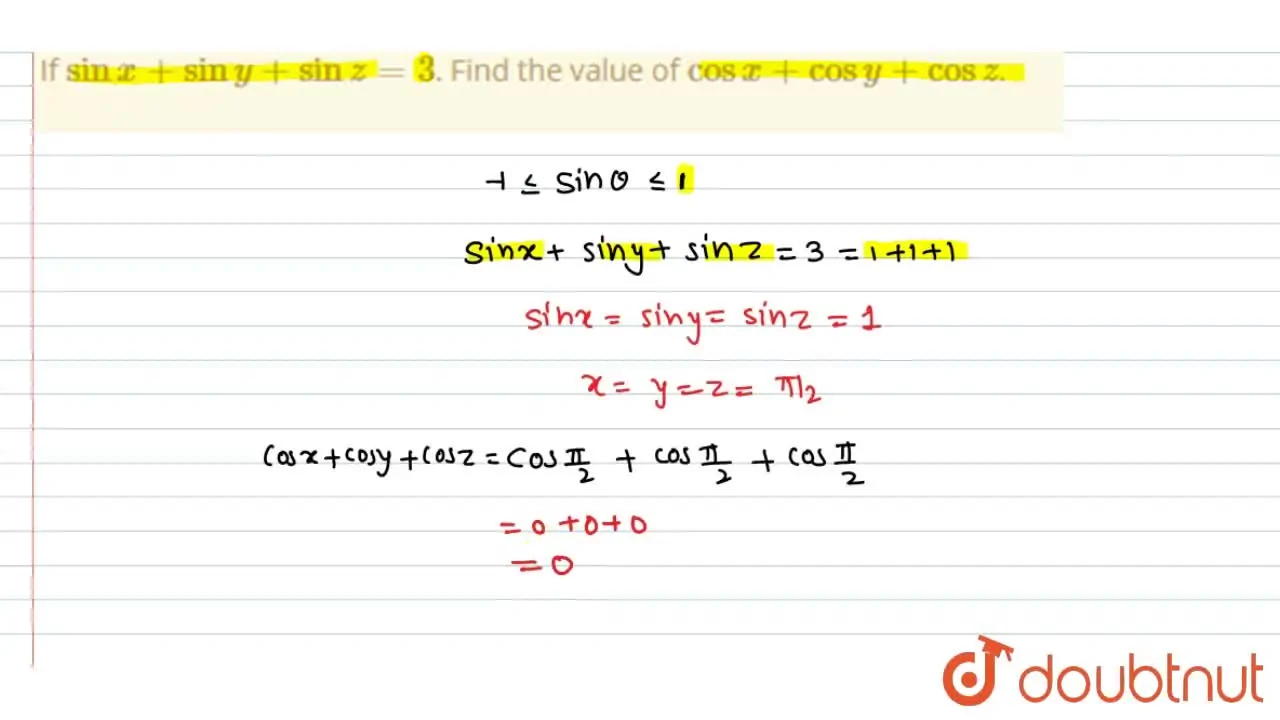 If sin x + sin y + sin z = 3. Find the value of cos x + cos y + cos z.
-1 ≤ sin θ ≤ 1
sinx + siny + sin z = 3 = 1+1+1
sinx = siny = sin z = 1
x = y = z = π/2
cosx + cosy + cosz = cos π/2 + cos π/2 + cos π/2
= 0 + 0 + 0
= 0
doubtnut